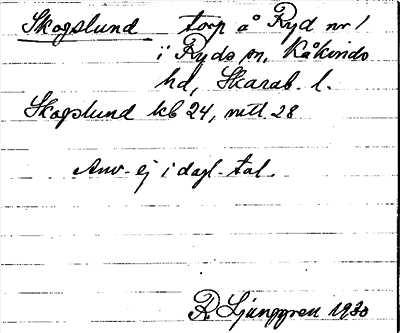 Skogslund torp å Ryd nr 1
i Ryds sn, Kåkinds
hd, Skarab. l.
Skogslund kb 24, mtl. 28
Anv. ej i dagl. tal.
R Ljunggren 1930